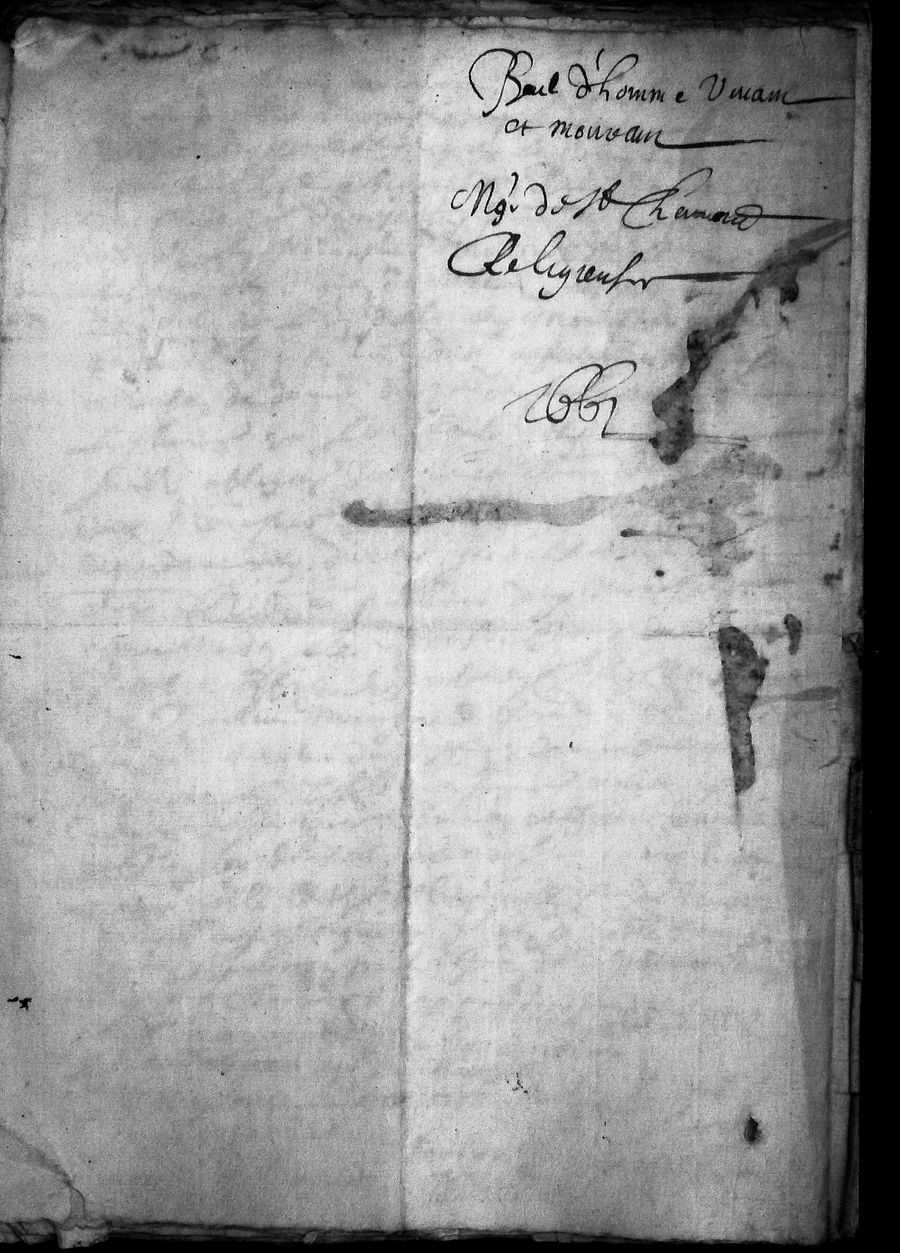 Bail d'homme Vivant
et mouvant
Mgr de St Chamond
Religieuses
1661